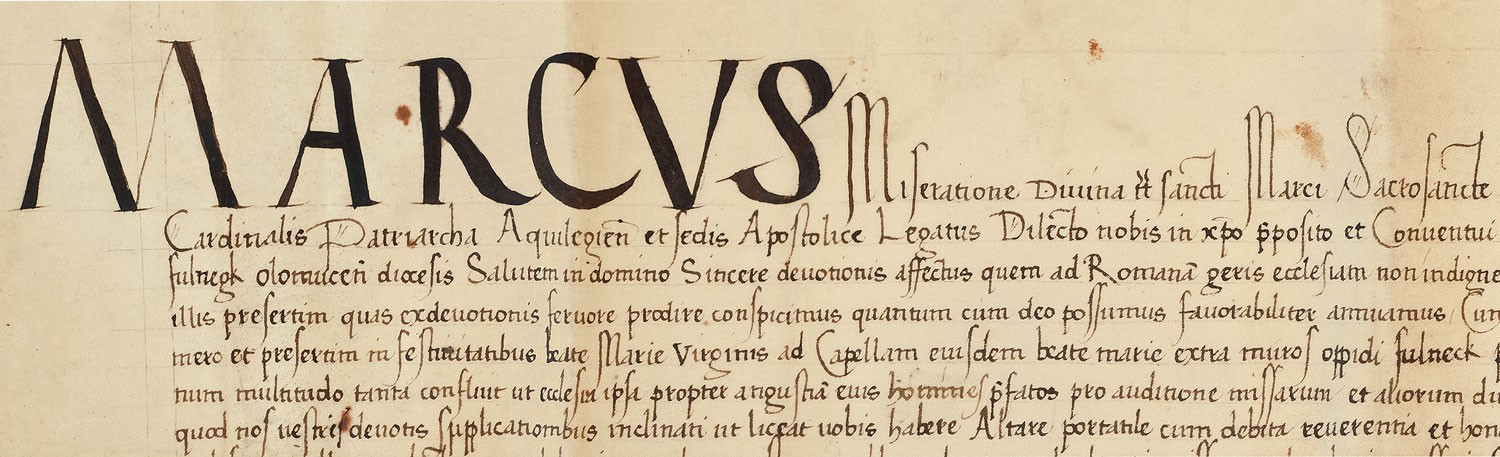 MARCVS Miseratione Divina tt sancti Marci Sacrosancte
Cardinalis Patriarcha Aquilegien̄ et sedis Apostolice Legatus Dilecto nobis in xp̄o p̄posito et Conventui
fulnegk olomucen̄ diocesis Salutem in domino Sincere devotionis affectus quem ad Romanā geris ecclesiam non indigne
illis presertim quas ex devotionis fervore prodire conspicimus quantum cum deo possumus favorabiliter annuamus Cum
mero et presertim in festivitatibus beate Marie Virginis ad Capellam eiusdem beate marie extra muros oppidi fulneck
num multitudo tanta confluit ut ecclesia ipsa propter angustiā eius homines p̄fatos pro auditione missarum et aliorum
quod nos vestris devotis supplicationibus inclinati ut liceat vobis habere Altare portatile cum debita reverentia et